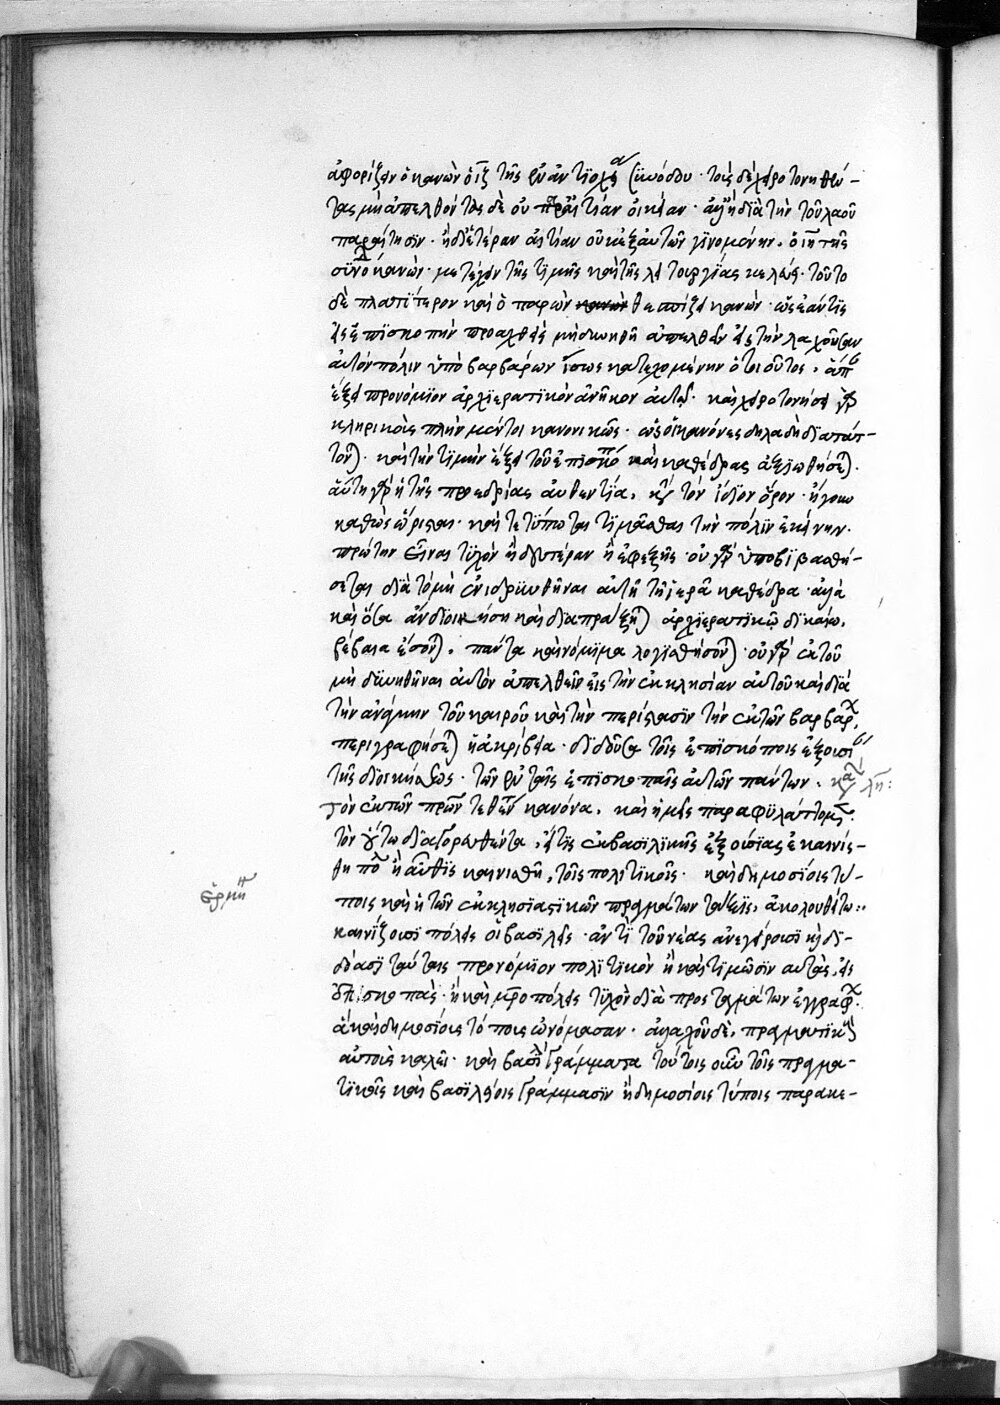 ἀφορίζει ὁ κανὼν ὁ ιζ τῆς ἐν ἀντιοχείᾳ συνόδου· τοὺς δὲ χειροτονηθέν-
τας μὴ ἀπελθόντας δὲ οὐ παρ αἰτίαν οἰκείαν· ἀλλ ἢ διὰ τὴν τοῦ λαοῦ
παραίτησιν· ἢ δι ἑτέραν αἰτίαν οὐκ ἐξ αὐτῶν γινομένην, ὁ ιη τῆς
συνό κανών· μετέχειν τῆς τιμῆς καὶ τῆς λειτουργίας κελεύει· τοῦτο
δὲ πλατύτερον καὶ ὁ παρὼν θεσπίζει κανών· ὡς ἐάν τις
εἰς ἐπισκοπὴν προαχθεὶς μὴ δυνηθῇ ἀπελθεῖν εἰς τὴν λαχοῦσαν
αὐτὸν πόλιν ὑπὸ βαρβάρων ἴσως κατεχομένην ὁ τοιοῦτος,
ἕξει προνόμιον ἀρχιερατικὸν ἀνῆκον αὐτῷ· καὶ χειροτονήσει γὰρ
κληρικοὺς πλὴν μέντοι κανονικῶς· ὡς οἱ κανόνες δηλαδὴ διατάτ-
τον)· καὶ τὴν τιμὴν ἕξει τοῦ ἐπισκό καὶ καθέδρας ἀξιωθήσε)·
αὕτη γὰρ ἡ τῆς προεδρίας αὐθεντία, κατὰ τὸν ἴδιον ὅρον· ἤγουν
καθὼς ὥρισται· καὶ τετύπωται τιμᾶσθαι τὴν πόλιν ἐκείνην·
πρώτην εἶναι τυχὸν ἢ δευτέραν ἢ ἐφεξῆς· οὐ γὰρ ὑποβιβασθή-
σεται διὰ τὸ μὴ ἐνιδρυνθῆναι αὐτῇ τῇ ἱερᾷ καθέδρᾳ· ἀλλὰ
καὶ ὅσα ἂν διοικήση καὶ διαπράξη) ἀρχιερατικῷ δικαίω,
βέβαια ἔσον), πάντα καὶ νόμιμα λογισθήσον)· οὐ γὰρ ἐκ τοῦ
μὴ δυνηθῆναι αὐτὸν ἀπελθεῖν εἰς τὴν ἐκκλησίαν αὐτοῦ καὶ διὰ
τὴν ἀνάγκην τοῦ καιροῦ καὶ τὴν περίστασιν τὴν ἐκ τῶν βαρβάρ,
περιγραφήσε) ἡ ἀκρίβεια· διδοῦσα τοῖς ἐπισκόποις ἐξουσί
τῆς διοικήσεως· τῶν ἐν ταῖς ἐπισκοπαῖς αὐτῶν πάντων. κα λη:
τὸν ἐκ τῶν πρῶν τεθέν κανόνα, καὶ ἡμεῖς παραφυλάττομ·
τὸν οὕτω διαγορευθέντα, εἴ τις ἐκ βασιλικῆς ἐξουσίας ἐκαινίσ-
θη πό ἢ αὖθις καινισθῇ, τοῖς πολιτικοῖς· καὶ δημοσίοις τύ-
ποις καὶ ἡ τῶν ἐκκλησιαστικῶν πραγμάτων τάξις, ἀκολουθείτω:
ἑρμη
καινίζουσι πόλεις οἱ βασιλεῖς· ἀντὶ τοῦ νέας ἀνεγείρουσι καὶ δι-
δόασι ταύταις προνόμιον πολιτικὸν ἢ καὶ τιμῶσιν αὐτὰς, εἰς
ἐπισκοπὰς· ἢ καὶ μροπόλεις τυχὸν διὰ προσταγμάτων ἐγγράφ·
ἃ καὶ δημοσίους τύπους ὠνόμασαν· ἀλλαχοῦ δὲ, πραγματικοὺς
αὐτοὺς καλεῖ· καὶ βασι γράμματα τούτοις οὖν τοῖς πραγμα-
τικοῖς καὶ βασιλείοις γράμμασιν ἢ δημοσίοις τύποις παρακε-